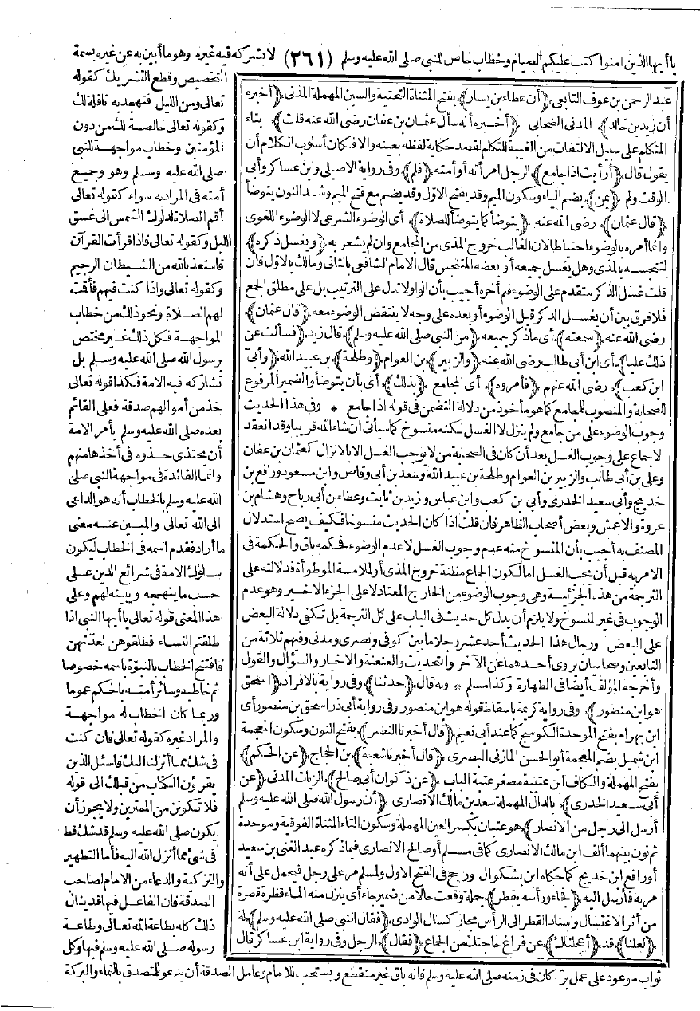 يا أيها الذين امنوا كتب عليكم الصيام وخطاب خاص للنبي صلى الله عليه وسلم (٢٦١) لا تشركه فيه غيره وهو ما أبين به عن غيره بسمة
عبد الرحمن بن عوف التابعى (أن عطاء بن يسار) بفتح المثناة التحتية والسين المهملة المدنى (أخبره
أن زيد بن خالد) المدنى الصحابى (أخبره أنه سأل عثمان بن عفان رضى الله عنه قلت) بتاء
المتكلم على سبيل الالتفات من الغيبة للتكلم لقصد حكاية لفظه بعينه والا فكان أسلوب الكلام أن
يقول قال (أرأيت اذا جامع) الرجل امرأته أو أمته (فلم) وفى رواية الاصيلى وبن عساكر وأبى
الوقت ولم (يمن) بضم الياء وسكون الميم وقد يفتح الاول وقد يضم مع فتح الميم وشد النون
(قال عثمان) رضى الله عنه (يتوضأ كما يتوضأ للصلاة) أى الوضوء الشرعى لا الوضوء اللغوى
وانما أمره بالوضوء احتياطا لان الغالب خروج المذى من المجامع وان لم يشعر به (ويغسل ذكره)
لتنجسه بالمذى وهل يغسل جميعه أو بعضه المتنجس قال الامام الشافعى بالثانى ومالك بالاول فان
قلت غسل الذكر متقدم على الوضوء فلم أخره أجيب بأن الواو لا تدل على الترتيب بل على مطلق الجمع
فلا فرق بين أن يغسل الذكر قبل الوضوء أو بعده على وجه لا ينتقض الوضوء معه (قال عثمان)
رضى الله عنه (سمعته) أى ما ذكر جميعه (من النبى صلى الله عليه وسلم) قال زيد (فسألت عن
ذلك عليا) أى ابن أبى طالب رضى الله عنه (والزبير) بن العوام (وطلحة) بن عبد الله (وأبى
ابن كعب) رضى الله عنهم (فأمروه) أى المجامع (بذلك) أى بأن يتوضأ والضمير المرفوع
للصحابة والمنصوب للمجامع كما هو مأخوذ من دلالة التضمن فى قوله اذا جامع * وفى هذا الحديث
وجوب الوضوء على من جامع ولم ينزل لا الغسل لكنه منسوخ كما سيأتى ان شاء الله قريبا وقد انعقد
الاجماع على وجوب الغسل بعد أن كان فى الصحابة من لا يوجب الغسل الا بالانزال كعثمان بن عفان
وعلى بن أبى طالب والزبير بن العوام وطلحة بن عبد الله وسعد بن أبى وقاص وابن مسعود ورافع بن
خديج وأبى سعيد الخدرى وأبى بن كعب وابن عباس وزيد بن ثابت وعطاء بن أبى رباح وهشام بن
عروة والاعمش وبعض أصحاب الظاهر فان قلت اذا كان الحديث منسوخا فكيف يصح استدلال
المصنف به أجيب بأن المنسوخ منه عدم وجوب الغسل لا عدم الوضوء فحكمه باق والحكمة فى
الامر به قبل أن يجب الغسل اما لكون الجماع مظنة خروج المذى أو لملامسة الموطوأة فدلالته على
الترجمة من هذه الجزئية وهى وجوب الوضوء من الخارج المعتاد لا على الجزء الاخير وهو عدم
الوجوب فى غير المنسوخ ولا يلزم أن يدل كل حديث فى الباب على كل الترجمة بل تكفى دلالة البعض
على البعض * ورجال هذا الحديث أحد عشر رجلا ما بين كوفى وبصرى ومدنى وفيهم ثلاثة من
التابعين وصحابيان يروى أحدهما عن الآخر والتحديث والعنعنة والاخبار والسؤال والقول
وأخرجه المؤلف أيضا فى الطهارة وكذا مسلم * وبه قال (حدثنا) وفى رواية بالافراد (اسحق
هو ابن منصور) وفى رواية كريمة باسقاط قوله هو ابن منصور وفى رواية أبى ذر اسحق بن منصور أى
ابن بهرام بفتح الموحدة الكوسج كما عند أبى نعيم (قال أخبرنا النضر) بفتح النون وسكون المعجمة
ابن شميل بضم المعجمة أبو الحسن المازنى البصرى (قال أخبرنا شعبة) بن الحجاج (عن الحكم)
بفتح المهملة والكاف ابن عتيبة مصغر عتبة الباب (عن ذكوان أبى صالح) الزيات المدنى (عن
أبى سعيد الخدرى) بالدال المهملة سعد بن مالك الانصارى (أن رسول الله صلى الله عليه وسلم
أرسل الى رجل من الانصار) هو عتبان بكسر العين المهملة وسكون التاء المثناة الفوقية وموحدة
ثم نون بينهما ألف ابن مالك الانصارى كما فى مسلم أو صالح الانصارى فيما ذكره عبد الغنى بن سعيد
أو رافع ابن خديج كما حكاه ابن بشكوال ورجح فى الفتح الاول ولمسلم مر على رجل فيحمل على أنه
مر به فأرسل اليه (فجاء ورأسه يقطر) جملة وقعت حالا من ضمير جاء أى ينزل منه الماء قطرة قطرة
من أثر الاغتسال واسناد القطر الى الرأس مجاز كسال الوادى (فقال النبى صلى الله عليه وسلم) له
(لعلنا) قد (أعجلناك) عن فراغ حاجتك من الجماع (فقال) الرجل وفى رواية ابن عساكر قال
التخصيص وقطع التشريك كقوله
تعالى ومن الليل فتهجد به نافلة لك
وكقوله تعالى خالصة لك من دون
المؤمنين وخطاب مواجهة للنبى
صلى الله عليه وسلم وهو وجميع
أمته فى المراد به سواء كقوله تعالى
أقم الصلاة لدلوك الشمس الى غسق
الليل وكقوله تعالى فاذا قرأت القرآن
فاستعذ بالله من الشيطان الرجيم
وكقوله تعالى واذا كنت فيهم فأقمت
لهم الصلاة ونحو ذلك من خطاب
المواجهة فكل ذلك غير مختص
برسول الله صلى الله عليه وسلم بل
تشاركه فيه الامة فكذا قوله تعالى
خذ من أموالهم صدقة فعلى القائم
بعده صلى الله عليه وسلم بأمر الامة
أن يحتذى حذوه فى أخذها منهم
وانما الفائدة فى مواجهة النبى صلى
الله عليه وسلم بالخطاب أنه هو الداعى
الى الله تعالى والمبين عنه معنى
ما أراد فقدم اسمه فى الخطاب ليكون
سلوك الامة فى شرائع الدين على
حسب ما ينهجه ويبينه لهم وعلى
هذا المعنى قوله تعالى يا أيها النبى اذا
طلقتم النساء فطلقوهن لعدتهن
فافتتح الخطاب بالنبوة باسمه خصوصا
ثم خاطبه وسائر أمته بالحكم عموما
وربما كان الخطاب له مواجهة
والمراد غيره كقوله تعالى فان كنت
فى شك مما أنزلنا اليك فاسئل الذين
يقرؤن الكتاب من قبلك الى قوله
فلا تكونن من الممترين ولا يجوز أن
يكون صلى الله عليه وسلم قد شك قط
فى شئ مما أنزل الله اليه فأما التطهير
والتزكية والدعاء من الامام لصاحب
الصدقة فان الفاعل فيها قد ينال
ذلك كله بطاعة الله تعالى وطاعة
رسوله صلى الله عليه وسلم فيها وكل
ثواب موعود على عمل بر كان فى زمنه صلى الله عليه وسلم فانه باق غير منقطع ويستحب للامام وعامل الصدقة أن يدعو للمتصدق بالنماء والبركة